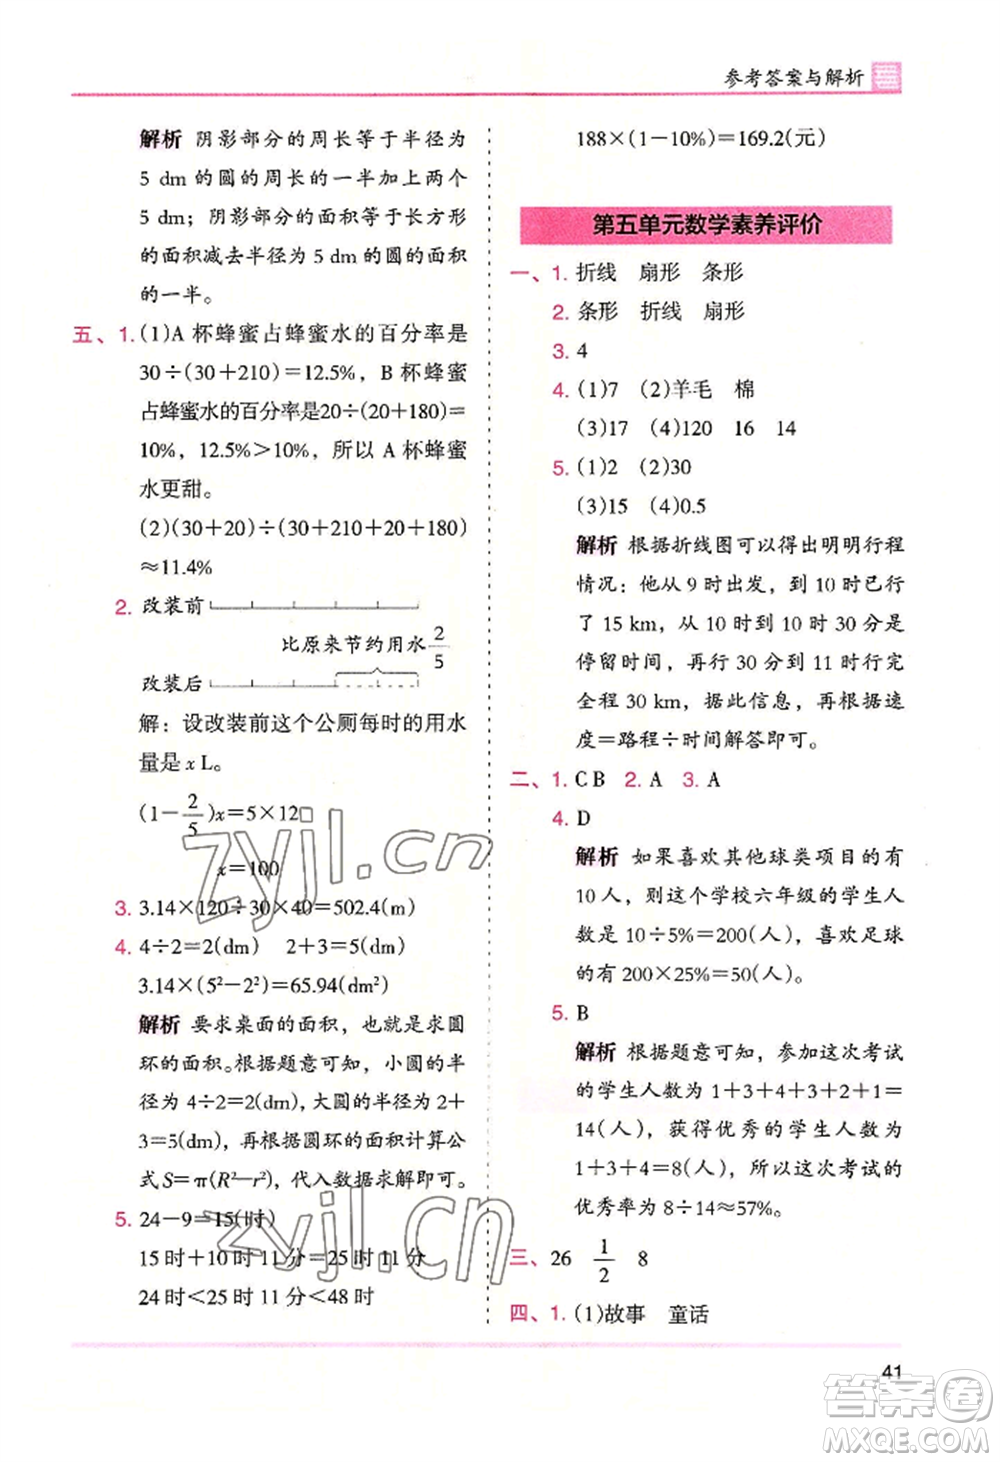 参考答案与解析
解析 阴影部分的周长等于半径为
5 dm 的圆的周长的一半加上两个
5 dm；阴影部分的面积等于长方形
的面积减去半径为 5 dm 的圆的面积
的一半。
五、1. (1)A 杯蜂蜜占蜂蜜水的百分率是
30÷(30+210)=12.5%，B 杯蜂蜜
占蜂蜜水的百分率是20÷(20+180)=
10%，12.5%>10%，所以 A 杯蜂蜜
水更甜。
(2)(30+20)÷(30+210+20+180)
≈11.4%
2. 改装前
比原来节约用水 2/5
改装后
解：设改装前这个公厕每时的用水
量是 x L。
(1-2/5)x=5×12
x=100
3. 3.14×120÷30×40=502.4(m)
4. 4÷2=2(dm) 2+3=5(dm)
3.14×(5²-2²)=65.94(dm²)
解析 要求桌面的面积，也就是求圆
环的面积。根据题意可知，小圆的半
径为 4÷2=2(dm)，大圆的半径为 2+
3=5(dm)，再根据圆环的面积计算公
式 S=π(R²-r²)，代入数据求解即可。
5. 24-9=15(时)
15 时+10 时 11 分=25 时 11 分
24 时<25 时 11 分<48 时
188×(1-10%)=169.2(元)
第五单元数学素养评价
一、1. 折线 扇形 条形
2. 条形 折线 扇形
3. 4
4. (1)7 (2)羊毛 棉
(3)17 (4)120 16 14
5. (1)2 (2)30
(3)15 (4)0.5
解析 根据折线图可以得出明明行程
情况：他从 9 时出发，到 10 时已行
了 15 km，从 10 时到 10 时 30 分是
停留时间，再行 30 分到 11 时行完
全程 30 km，据此信息，再根据速
度=路程÷时间解答即可。
二、1. C B 2. A 3. A
4. D
解析 如果喜欢其他球类项目的有
10 人，则这个学校六年级的学生人
数是 10÷5%=200(人)，喜欢足球
的有 200×25%=50(人)。
5. B
解析 根据题意可知，参加这次考试
的学生人数为 1+3+4+3+2+1=
14(人)，获得优秀的学生人数为
1+3+4=8(人)，所以这次考试的
优秀率为 8÷14≈57%。
三、26 1/2 8
四、1. (1)故事 童话
41
zyjl.cn
zyjl.cn
答案圈
MXQE.COM